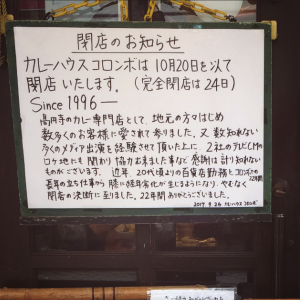 閉店のお知らせ
カレーハウスコロンボは10月20日を以て
閉店いたします。(完全閉店は24日)
Since 1996—
高円寺のカレー専門店として、地元の方々はじめ
数多くのお客様に愛されて参りました。又数知れない
多くのメディア出演を経験させて頂いた上に、2社のテレビCMの
ロケ地にも関わり協力出来ました事など感謝は計り知れない
ものがございます。近年、20代頃よりの百貨店勤務とコロンボの22年間
長年の立ち仕事から膝に経年劣化が生じるようになり、やむなく
閉店の決断に至りました。22年間ありがとうございました。
2019.9.26 カレーハウスコロンボ